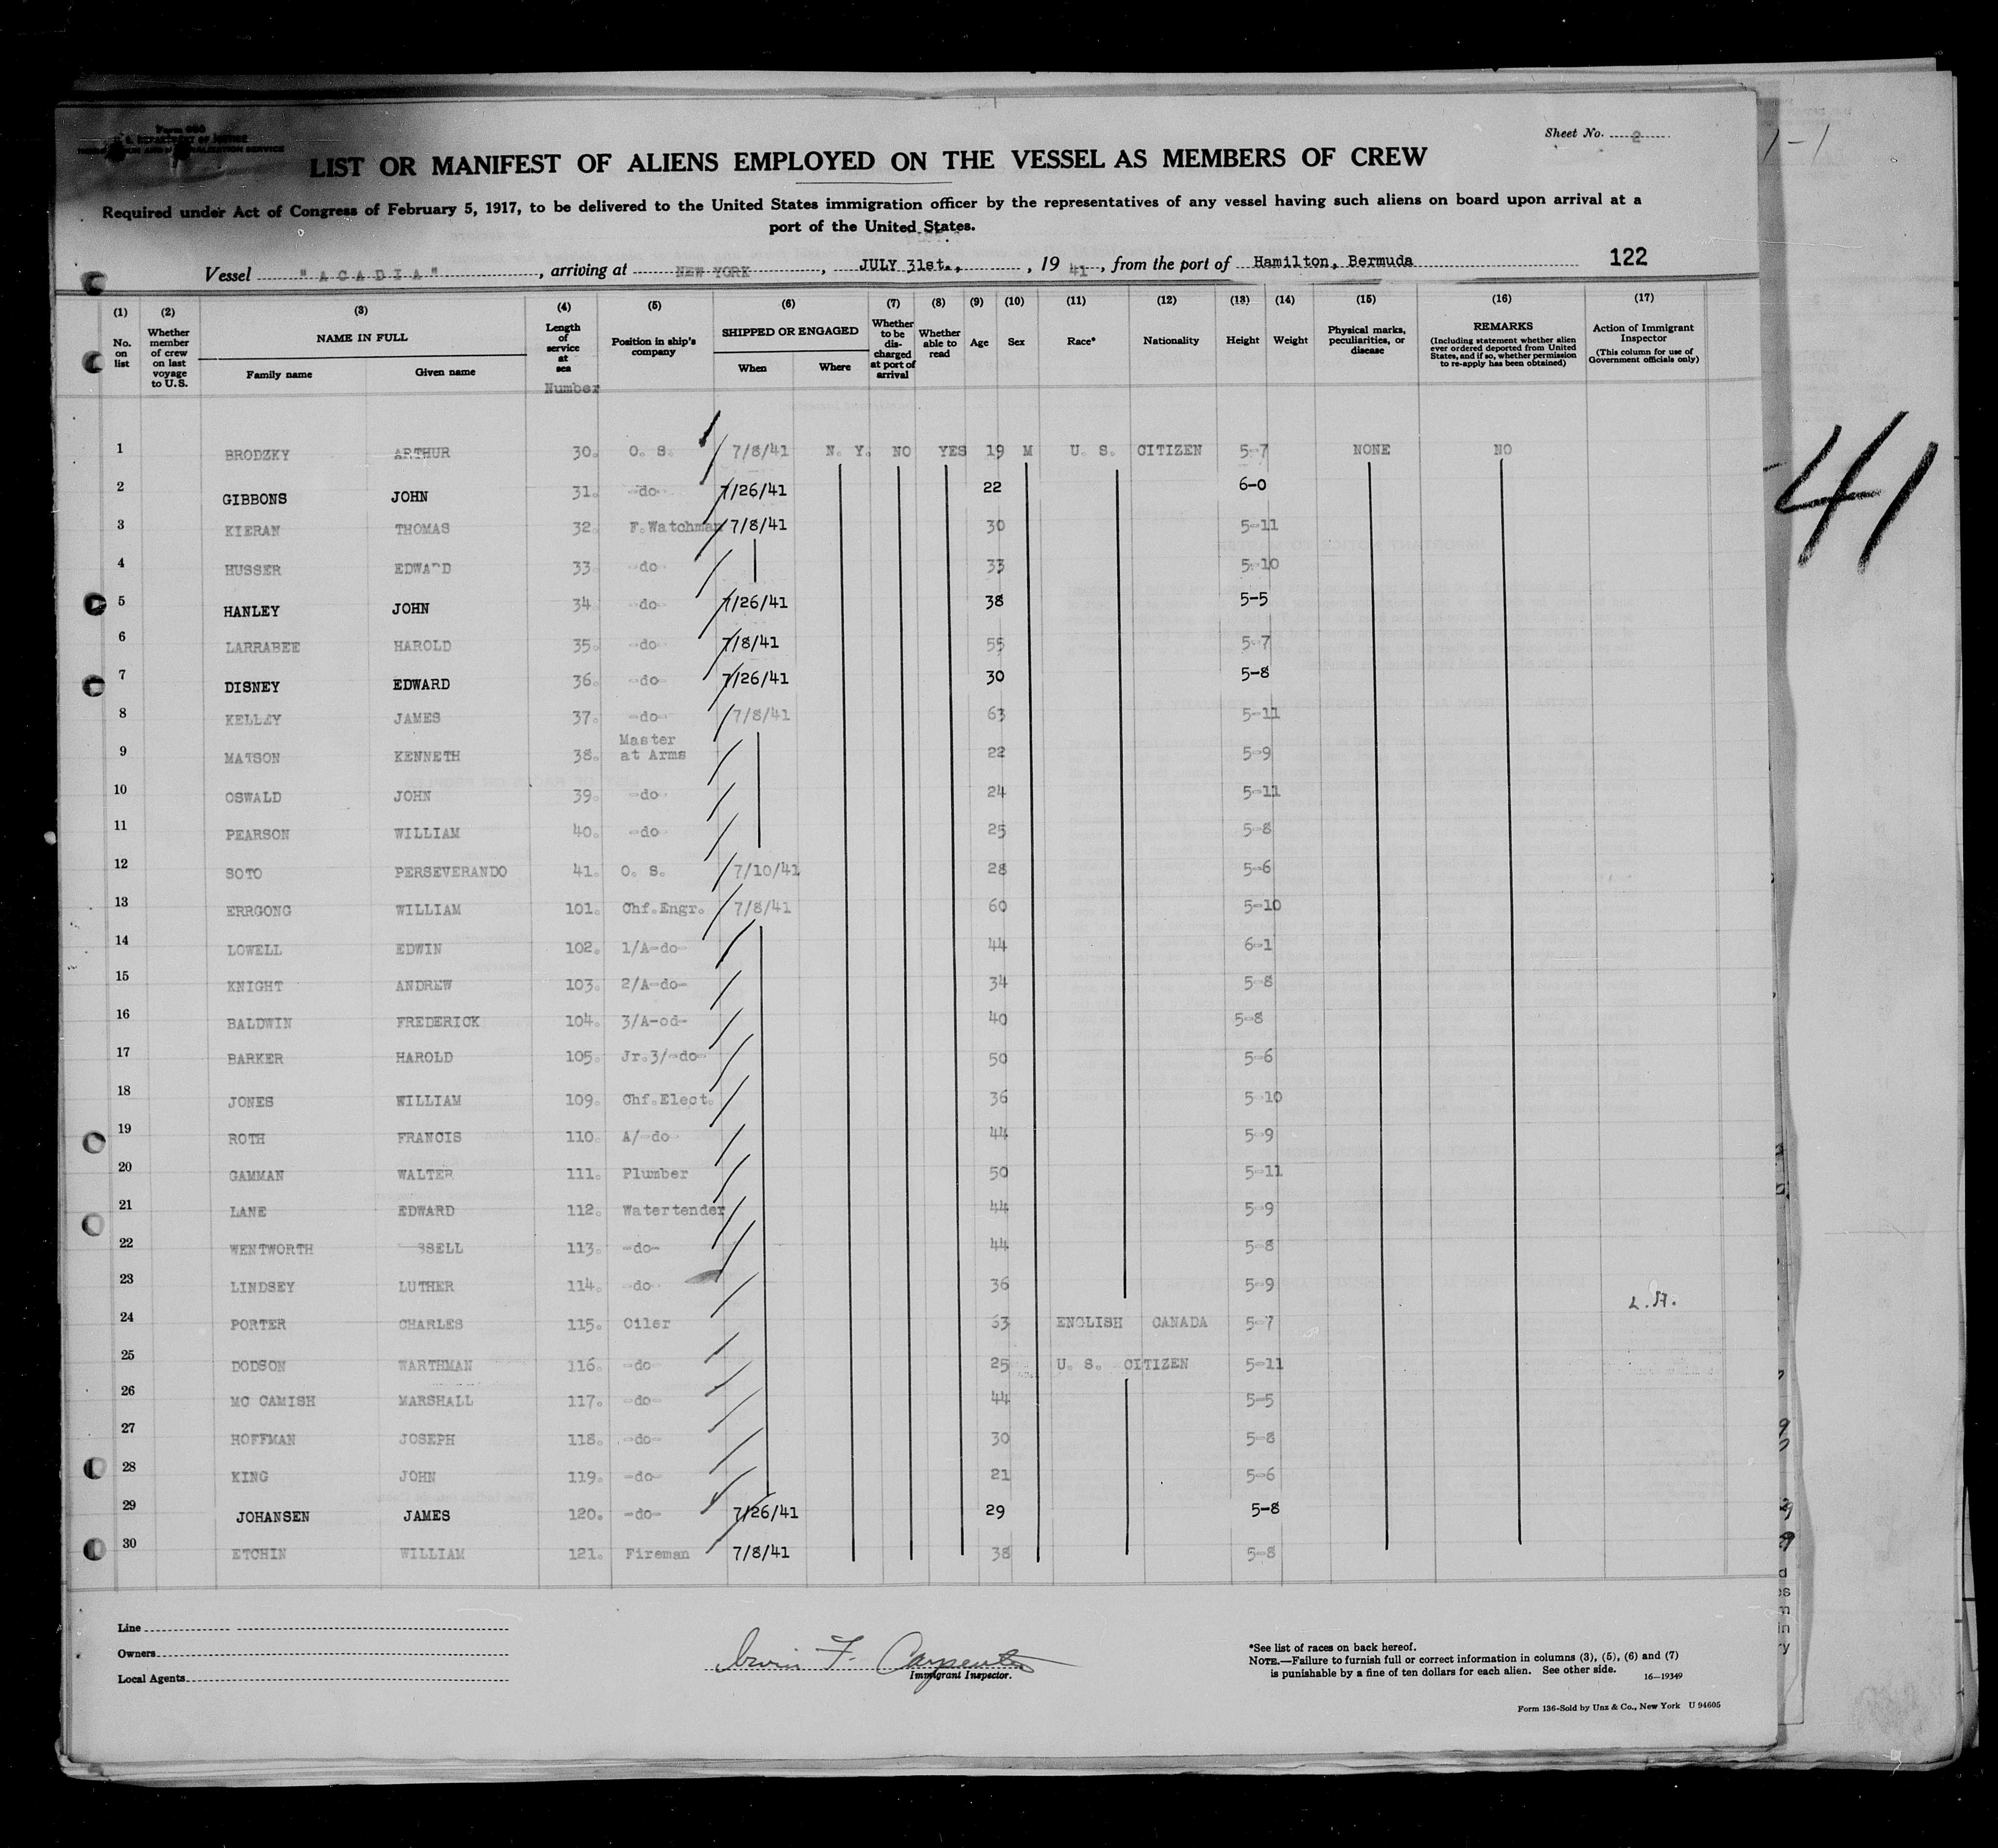 Sheet No. 2
LIST OR MANIFEST OF ALIENS EMPLOYED ON THE VESSEL AS MEMBERS OF CREW
Required under Act of Congress of February 5, 1917, to be delivered to the United States immigration officer by the representatives of any vessel having such aliens on board upon arrival at a
port of the United States.
Vessel "ACADIA", arriving at NEW YORK, JULY 31st., 1941, from the port of Hamilton, Bermuda 122
(1) (2) (3) (4) (5) (6) (7) (8) (9) (10) (11) (12) (13) (14) (15) (16) (17)
No. on list
Whether member of crew on last voyage to U.S.
NAME IN FULL
Family name
Given name
Length of service at sea
Number
Position in ship's company
SHIPPED OR ENGAGED
When
Where
Whether to be discharged at port of arrival
Whether able to read
Age
Sex
Race*
Nationality
Height
Weight
Physical marks, peculiarities, or disease
REMARKS
(Including statement whether alien ever ordered deported from United States, and if so, whether permission to re-apply has been obtained)
Action of Immigrant Inspector
(This column for use of Government officials only)
1 BRODZKY ARTHUR 30. O. S. 7/8/41 N. Y. NO YES 19 M U. S. CITIZEN 5-7 NONE NO
2 GIBBONS JOHN 31. -do- 7/26/41 22 6-0
3 KIERAN THOMAS 32. F.Watchman 7/8/41 30 5-11
4 HUSSER EDWARD 33 -do- 33 5-10
5 HANLEY JOHN 34 -do- 7/26/41 38 5-5
6 LARRABEE HAROLD 35. -do- 7/8/41 55 5-7
7 DISNEY EDWARD 36. -do- 7/26/41 30 5-8
8 KELLEY JAMES 37. -do- 7/8/41 63 5-11
9 MATSON KENNETH 38. Master at Arms 22 5-9
10 OSWALD JOHN 39. -do- 24 5-11
11 PEARSON WILLIAM 40. -do- 25 5-8
12 SOTO PERSEVERANDO 41. O. S. 7/10/41 28 5-6
13 ERRGONG WILLIAM 101. Chf.Engr. 7/8/41 60 5-10
14 LOWELL EDWIN 102. 1/A-do- 44 6-1
15 KNIGHT ANDREW 103. 2/A-do- 34 5-8
16 BALDWIN FREDERICK 104. 3/A-od- 40 5-8
17 BARKER HAROLD 105. Jr.3/-do- 50 5-6
18 JONES WILLIAM 109. Chf.Elect. 36 5-10
19 ROTH FRANCIS 110. A/-do- 44 5-9
20 GAMMAN WALTER 111. Plumber 50 5-11
21 LANE EDWARD 112. Watertender 44 5-9
22 WENTWORTH SSELL 113. -do- 44 5-8
23 LINDSEY LUTHER 114. -do- 36 5-9
24 PORTER CHARLES 115. Oiler 63 ENGLISH CANADA 5-7
25 DODSON WARTHMAN 116. -do- 25 U. S. CITIZEN 5-11
26 MC CAMISH MARSHALL 117. -do- 44 5-5
27 HOFFMAN JOSEPH 118. -do- 30 5-8
28 KING JOHN 119. -do- 21 5-6
29 JOHANSEN JAMES 120. -do- 7/26/41 29 5-8
30 ETCHIN WILLIAM 121. Fireman 7/8/41 38 5-8
41
Line
Owners
Local Agents
Irwin F. Carpenter
Immigrant Inspector.
*See list of races on back hereof.
NOTE.—Failure to furnish full or correct information in columns (3), (5), (6) and (7)
is punishable by a fine of ten dollars for each alien. See other side. 16-19349
Form 136-Sold by Unz & Co., New York U 94605